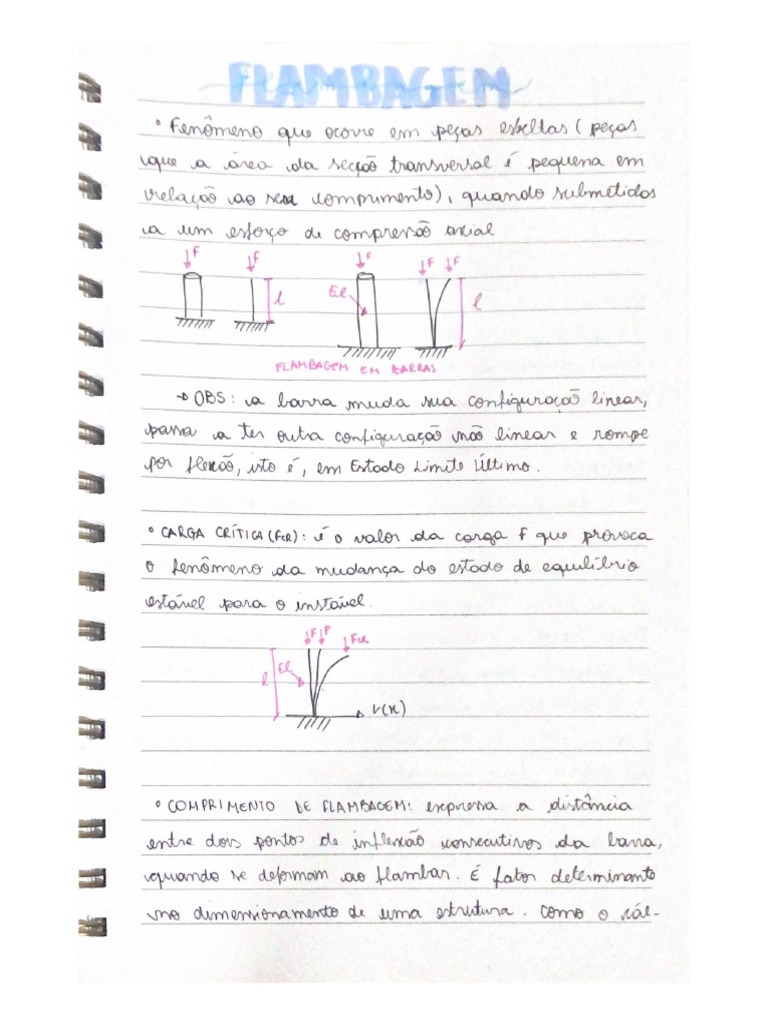 FLAMBAGEM
• Fenômeno que ocorre em peças esbeltas (peças
que a área da secção transversal é pequena em
relação ao seu comprimento), quando submetidos
a um esforço de compressão axial
F F F F F
l EI l
FLAMBAGEM EM BARRAS
→ OBS: a barra muda sua configuração linear,
passa a ter outra configuração não linear e rompe
por flexão, isto é, em Estado Limite Último.
• CARGA CRÍTICA (FCR): é o valor da carga F que provoca
o fenômeno da mudança do estado de equilíbrio
estável para o instável.
F F FCR
l EI
V(x)
• COMPRIMENTO DE FLAMBAGEM: expressa a distância
entre dois pontos de inflexão consecutivos da barra,
quando se deformam ao flambar. É fator determinante
no dimensionamento de uma estrutura. Como o cál-